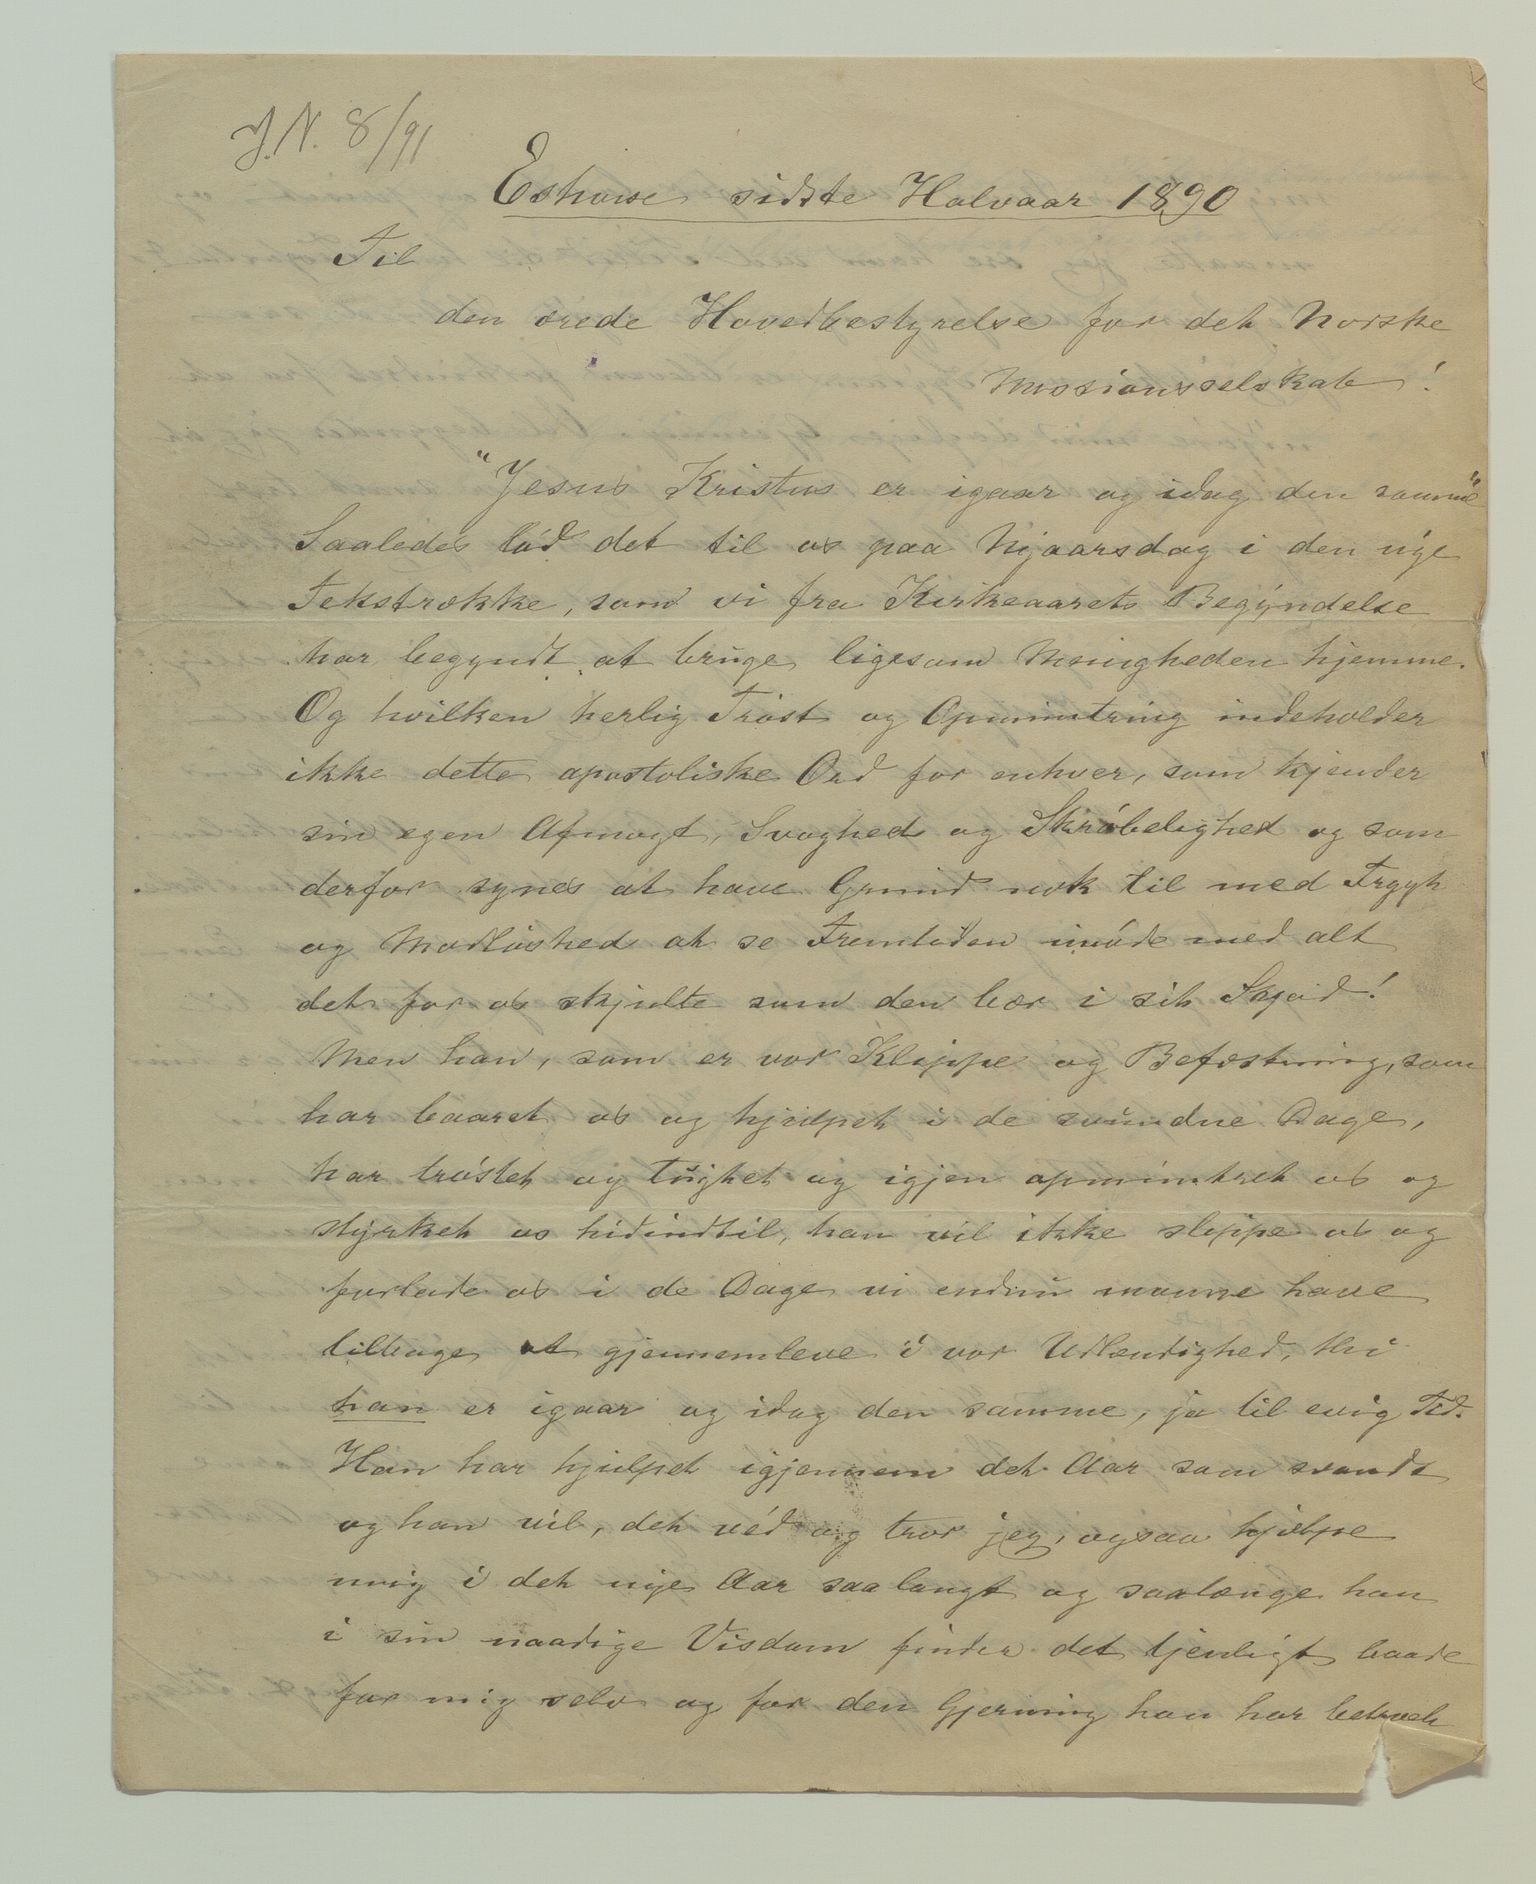 J.N. 8/91
Eshowe sidste Halvaar 1890
Til
den ærede Hovedbestyrelse for det Norske
Missionsselskab!
"Jesus Kristus er igaar og idag den samme"
Saaledes lød det til os paa Nyaarsdag i den nye
Tekstrække, som vi fra Kirkeaarets Begyndelse
har begyndt at bruge ligesom Menigheden hjemme.
Og hvilken herlig Trøst og Opmuntring indeholder
ikke dette apostoliske Ord for enhver, som kjender
sin egen Afmagt, Svaghed og Skrøbelighed og som
derfor synes at have Grund nok til med Frygt
og Modløshed at se Fremtiden imøde med alt
det for os skjulte som den bær i sit Skjød!
Men han, som er vor Klippe og Befæstning, som
har baaret os og hjulpet i de svundne Dage,
har trøstet og tugtet og igjen opmuntret os og
styrket os hidindtil, han vil ikke slippe os og
forlade os i de Dage vi endnu monne have
tilbage at gjennemleve i vor Udlændighed, thi
han er igaar og idag den samme, ja til evig Tid.
Han har hjulpet igjennem det Aar som svandt
og han vil, det véd og tror jeg, ogsaa hjælpe
mig i det nye Aar saa langt og saalænge han
i sin naadige Visdom finder det tjenligt baade
for mig selv og for den Gjerning han har betroet